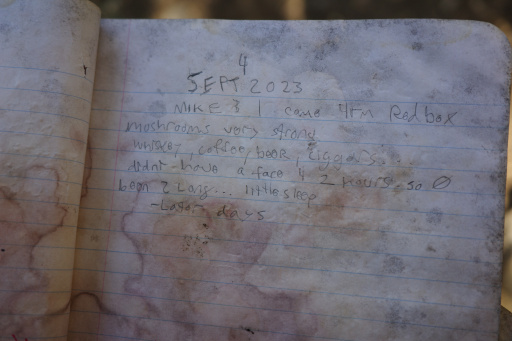 4
SEPT 2023
MIKE & I came 4rm Redbox
moshrooms very strong
whiskey, coffee/beer, ciggars.
didnt have a face 4 2 years, so
been 2 Long... little sleep
days